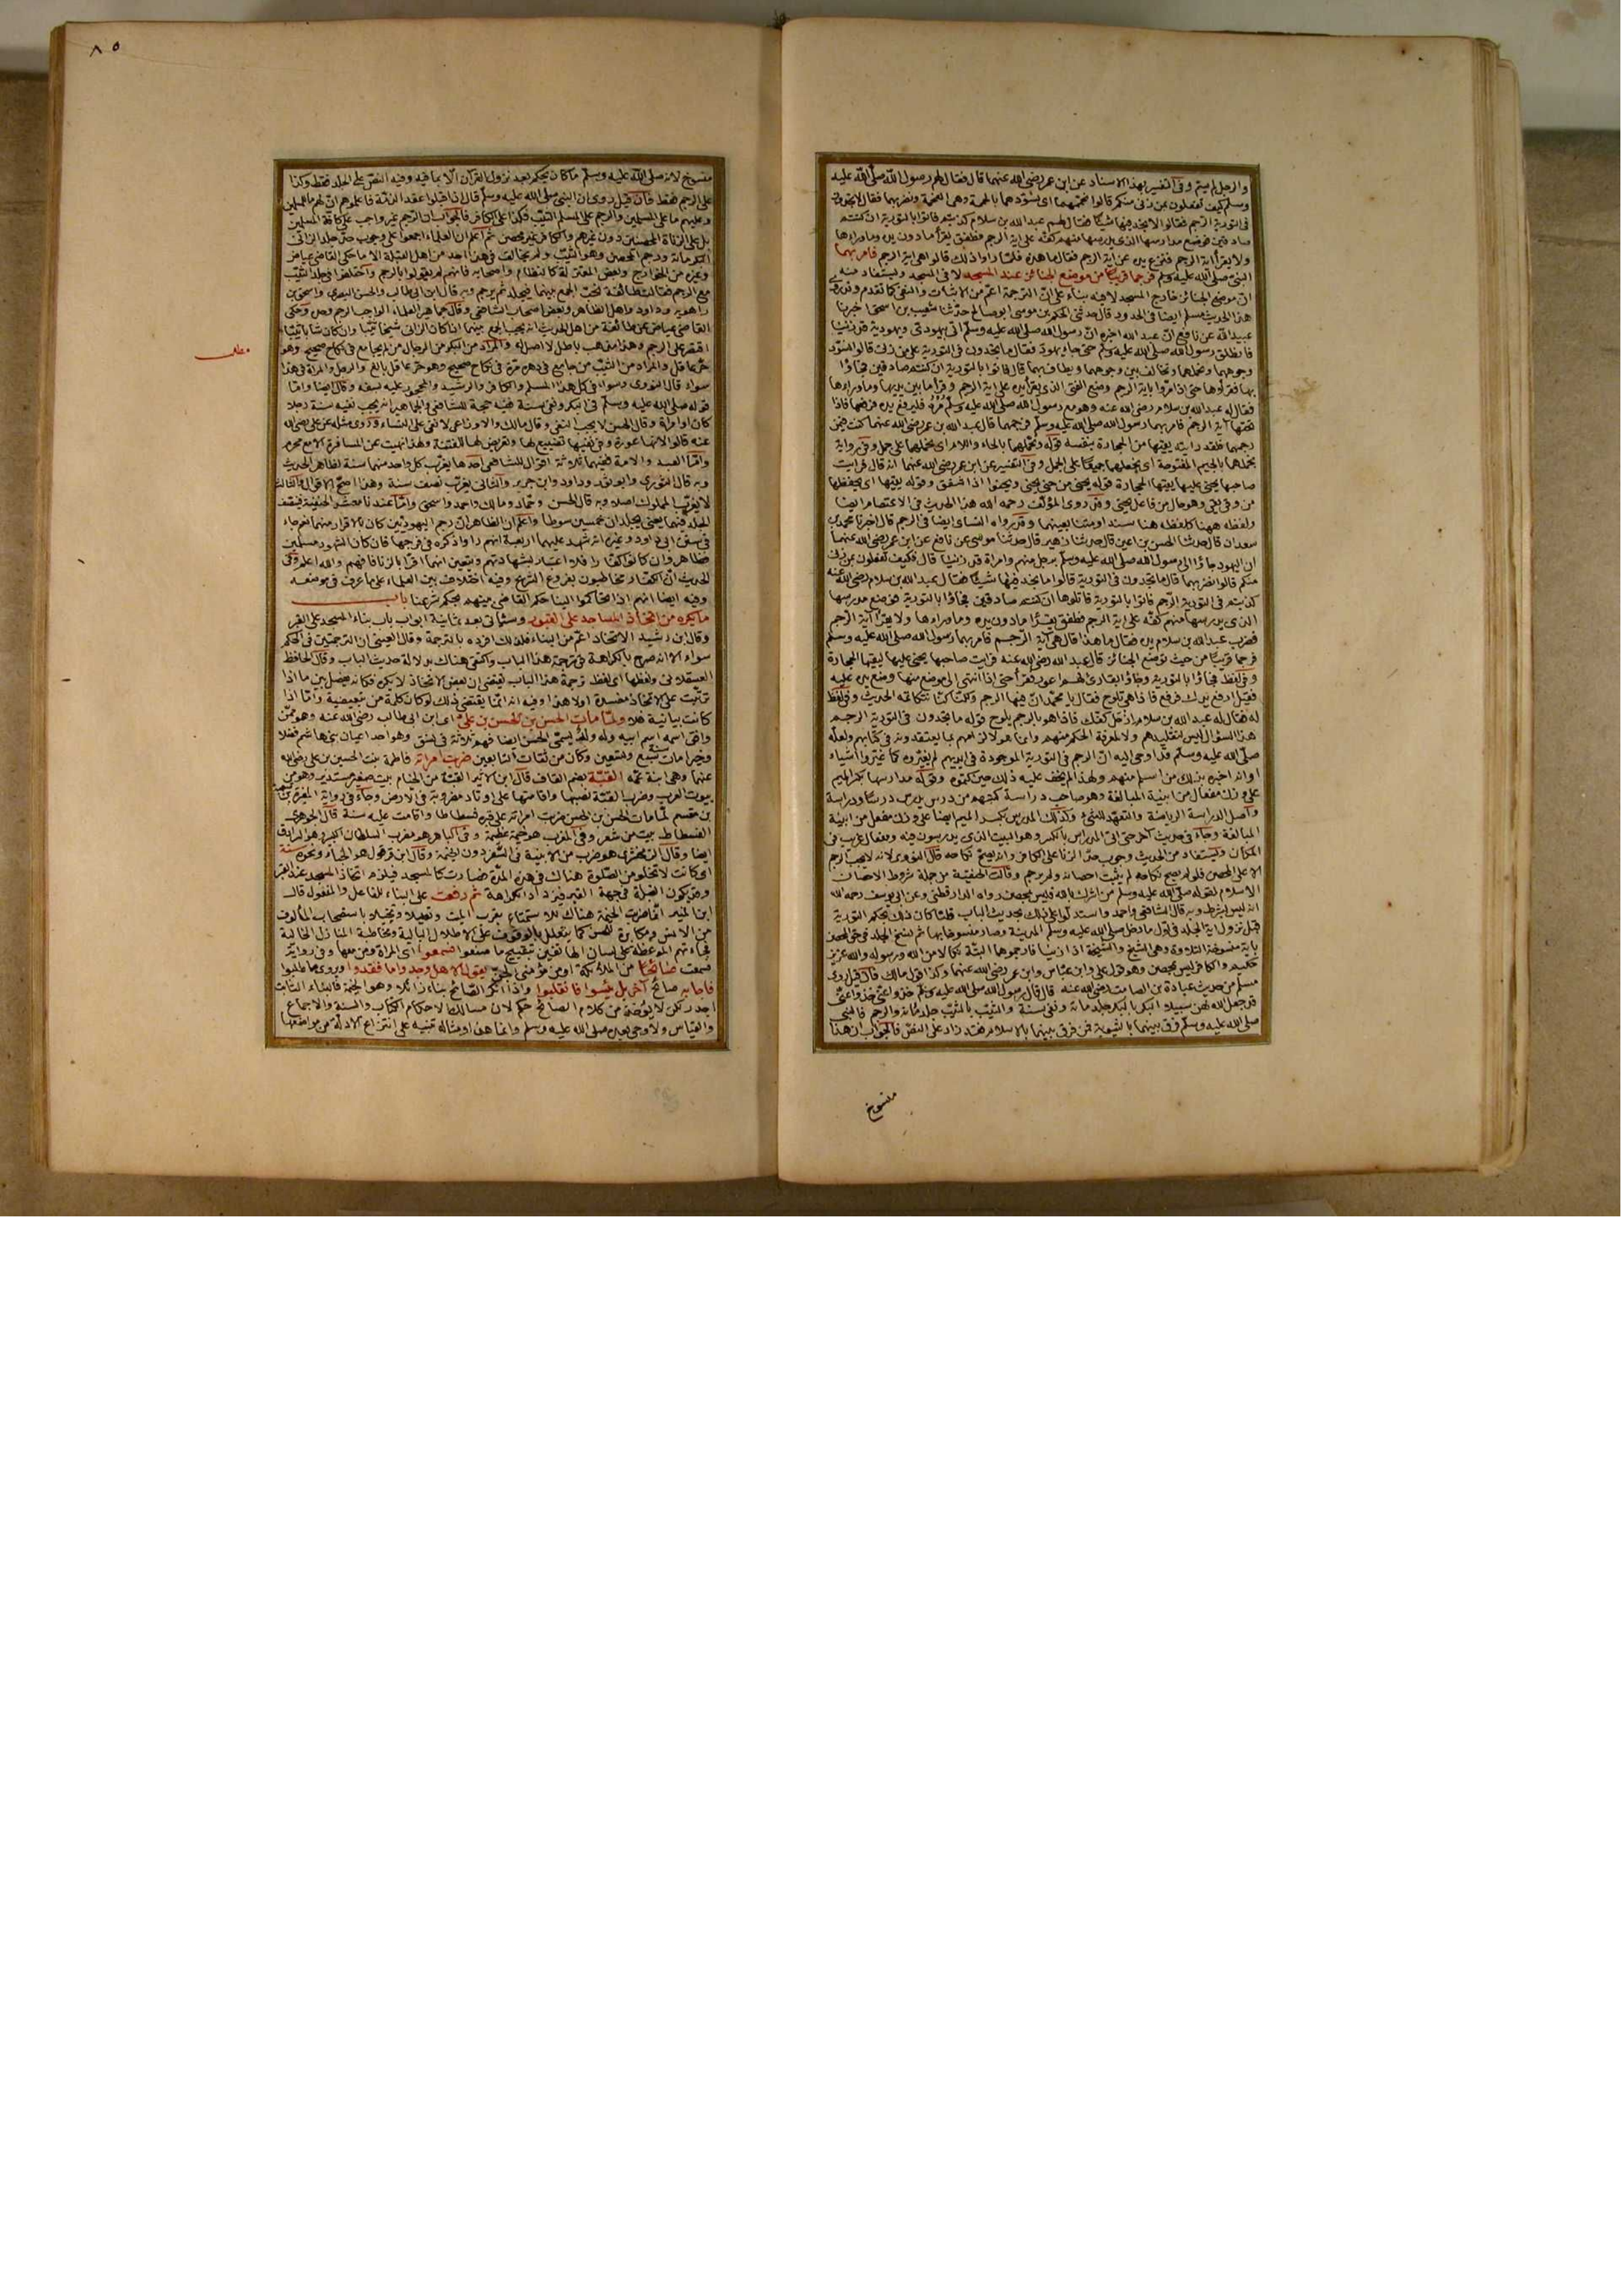 والرجل لم يتم وفى التفسير بهذا الاسناد عن ابن عمر رضى الله عنهما قال فقال لهم رسول الله صلى الله عليه
وسلم كيف تفعلون بمن زنى منكم قالوا نحممهما اى نسودهما بالحممة وهى الفحمة ونضربهما فقال لا تجدون
فى التورية الرجم فقالوا لا نجد فيها شيئا فقال لهم عبد الله بن سلام كذبتم فاتوا بالتورية ان كنتم
صادقين فوضع مدارسها الذى يدرسها منهم كفه على اية الرجم فطفق يقرأ ما دون يده وما وراءها
ولا يقرأ اية الرجم فنزع يده عن اية الرجم فقال ما هذه فلما راوا ذلك قالوا هى اية الرجم فامر بهما
النبى صلى الله عليه وسلم فرجما قريبا من موضع الجنائز عند المسجد لا فى المسجد ويستفاد منه
ان موضع الجنائز خارج المسجد لا فيه بناء على ان الترجمة اعم من الاثبات والنفى كما تقدم وقد روى
هذا الحديث مسلم ايضا فى الحدود قال حدثنى الحكم بن موسى ابو صالح حدثنا شعيب بن اسحق اخبرنا
عبيد الله عن نافع ان عبد الله اخبره ان رسول الله صلى الله عليه وسلم اتى بيهودى ويهودية قد زنيا
فانطلق رسول الله صلى الله عليه وسلم حتى جاء يهود فقال ما تجدون فى التورية على من زنى قالوا نسود
وجوههما ونحملهما ونخالف بين وجوههما ويطاف بهما قال فاتوا بالتورية ان كنتم صادقين فجاؤا
بها فقرأوها حتى اذا مروا باية الرجم وضع الفتى الذى يقرأ يده على اية الرجم وقرأ ما بين يديها وما وراءها
فقال له عبد الله بن سلام رضى الله عنه وهو مع رسول الله صلى الله عليه وسلم مره فليرفع يده فرفعها فاذا
تحتها آية الرجم فامر بهما رسول الله صلى الله عليه وسلم فرجمهما قال عبد الله بن عمر رضى الله عنهما كنت فيمن
رجمهما فلقد رايته يقيها من الحجارة بنفسه قوله ونحملهما بالحاء واللام اى نحملهما على جمل وفى رواية
نجملهما بالجيم المفتوحة اى نجعلهما جميعا على الجمل وفى التفسير عن ابن عمر رضى الله عنهما انه قال فرايت
صاحبها يحنى عليها يقيها الحجارة قوله يحنى من حنى يحنى ويحنو اذا اشفق وقوله يقيها اى يحفظها
من وقى يقى وهو حال من فاعل يحنى وقد روى المؤلف رحمه الله هذا الحديث فى الاعتصام ايضا
ولفظه ههنا كلفظه هنا سندا ومتنا بعينهما وقد رواه النسائى ايضا فى الرجم قال اخبرنا محمد بن
سعدان قال حدثنا الحسن بن اعين قال حدثنا زهير قال حدثنا موسى عن نافع عن ابن عمر رضى الله عنهما
ان اليهود جاؤا الى رسول الله صلى الله عليه وسلم برجل منهم وامراة قد زنيا قال فكيف تفعلون بمن زنى
منكم قالوا نضربهما قال ما تجدون فى التورية قالوا ما نجد فيها شيئا فقال عبد الله بن سلام رضى الله عنه
كذبتم فى التورية الرجم فاتوا بالتورية فاتلوها ان كنتم صادقين فجاؤا بالتورية فوضع مدرسها
الذى يدرسها منهم كفه على اية الرجم فطفق يقرأ ما دون يده وما وراءها ولا يقرأ آية الرجم
فضرب عبد الله بن سلام يده فقال ما هذا قال هى آية الرجم فامر بهما رسول الله صلى الله عليه وسلم
فرجما قريبا من حيث توضع الجنائز قال عبد الله رضى الله عنه فرايت صاحبها يحنى عليها ليقيها الحجارة
وفى لفظ فجاؤا بالتورية وجاؤا بقارئ لهم اعور فقرأ حتى اذا انتهى الى موضع منها وضع يده عليه
فقيل ارفع يدك فرفع فاذا هى تلوح فقال يا محمد ان فيها الرجم ولكنا كنا نتكاتمه الحديث وفى لفظ
له فقال له عبد الله بن سلام ازحل كفك فاذا هو بالرجم يلوح قوله ما تجدون فى التورية الرجم
هذا السؤال ليس لتقليدهم ولا لمعرفة الحكم منهم وانما هو لالزامهم بما يعتقدونه فى كتابهم ولعله
صلى الله عليه وسلم قد اوحى اليه ان الرجم فى التورية الموجودة فى ايديهم لم يغيروه كما غيروا اشياء
او انه اخبره بذلك من اسلم منهم ولهذا لم يخف عليه ذلك حين كتموه وقوله مدارسها بكسر الميم
على وزن مفعال من ابنية المبالغة وهو صاحب دراسة كتبهم من درس يدرس درسا ودراسة
واصل الدراسة الرياضة والتعهد للشئ وكذلك المدرس بكسر الميم ايضا على وزن مفعل من ابنية
المبالغة وجاء فى حديث آخر حتى اتى المدراس بالكسر وهو البيت الذى يدرسون فيه ومفعال غريب فى
المكان ويستفاد من الحديث وجوب حد الزنا على الكافر وانه يصح نكاحه قال النووى لانه لا يجب الرجم
الا على المحصن فلو لم يصح نكاحه لم يثبت احصانه ولم يرجم وقالت الحنفية من جملة شروط الاحصان
الاسلام لقوله صلى الله عليه وسلم من اشرك بالله فليس بمحصن رواه الدارقطنى وعن ابى يوسف رحمه الله
انه ليس بشرط وبه قال الشافعى واحمد واستدلوا على ذلك بحديث الباب قلنا كان ذلك بحكم التورية
قبل نزول اية الجلد فى اول ما دخل صلى الله عليه وسلم المدينة وصار منسوخا بها ثم نسخ الجلد فى حق المحصن
باية منسوخة التلاوة وهى الشيخ والشيخة اذا زنيا فارجموهما البتة نكالا من الله ورسوله والله عزيز
حكيم والكافر ليس بمحصن وهو قول على وابن عباس وابن عمر رضى الله عنهما وكذا قول مالك فان قيل روى
مسلم من حديث عبادة بن الصامت رضى الله عنه قال قال رسول الله صلى الله عليه وسلم خذوا عنى خذوا عنى
قد جعل الله لهن سبيلا البكر بالبكر جلد مائة ونفى سنة والثيب بالثيب جلد مائة والرجم فالنبى
صلى الله عليه وسلم فرق بينهما بالثيوبة فمن فرق بينهما بالاسلام فقد زاد على النص فالجواب ان هذا
منسوخ
٨٥
منسوخ لانه صلى الله عليه وسلم ما كان يحكم بعد نزول القرآن الا بما فيه وفيه النص على الجلد فقط وكذا
على الرجم فقط فان قيل روى ان النبى صلى الله عليه وسلم قال اذا قبلوا عقد الذمة فاعلموهم ان لهم ما للمسلمين
وعليهم ما على المسلمين والرجم على المسلم الثيب فكذا على الكافر فالجواب ان الرجم غير واجب على كافة المسلمين
بل على الزناة المحصنين دون غيرهم والكافر غير محصن ثم اعلم ان العلماء اجمعوا على وجوب حد جلد الزانى
البكر مائة ورجم المحصن وهو الثيب ولم يخالف فى هذا احد من اهل القبلة الا ما حكى القاضى عياض
وغيره من الخوارج وبعض المعتزلة كالنظام واصحابه فانهم لم يقولوا بالرجم واختلفوا فى جلد الثيب
مع الرجم فقالت طائفة يجب الجمع بينهما فيجلد ثم يرجم وبه قال ابن ابى طالب والحسن البصرى واسحق بن
راهويه وداود واهل الظاهر وبعض اصحاب الشافعى وقال جماهير العلماء الواجب الرجم وحده وحكى
القاضى عياض عن طائفة من اهل الحديث انه يجب الجمع بينهما اذا كان الزانى شيخا ثيبا وان كان شابا ثيبا
اقتصر على الرجم وهذا مذهب باطل لا اصل له والمراد من البكر من الرجال من لم يجامع فى نكاح صحيح وهو
مطلب
حر عاقل والمراد من الثيب من جامع فى دهره مرة فى نكاح صحيح وهو حر عاقل بالغ والرجل والمراة فى هذا
سواء قال النووى وسواء فى كل هذا المسلم والكافر والرشيد والمحجور عليه بسفه وقال ايضا واما
قوله صلى الله عليه وسلم فى البكر ونفى سنة ففيه حجة للشافعى والجماهير انه يجب نفيه سنة رجلا
كان او امراة وقال الحسن لا يجب النفى وقال مالك والاوزاعى لا نفى على النساء وروى مثله عن على رضى الله
عنه قالوا لانها عورة وفى نفيها تضييع لها وتعريض لها للفتنة ولهذا نهيت عن المسافرة الا مع محرم
واما العبد والامة ففيهما ثلاثة اقوال للشافعى احدها يغرب كل واحد منهما سنة لظاهر الحديث
وبه قال الثورى وابو ثور وداود وابن جرير والثانى يغرب نصف سنة وهذا اصح الاقوال والثالث
لا يغرب المملوك اصلا وبه قال الحسن وحماد ومالك واحمد واسحق واما عندنا معشر الحنفية فينصف
الجلد فيهما يعنى يجلدان خمسين سوطا واعلم ان الظاهر ان رجم اليهوديين كان بالاقرار منهما نعم جاء
فى سنن ابى داود وغيره انه شهد عليهما اربعة انهم راوا ذكره فى فرجها فان كان الشهود مسلمين
فظاهر وان كانوا كفارا فلا اعتبار بشهادتهم ويتعين انهما اقرا بالزنا فافهم والله اعلم وفى
الحديث ان الكفار مخاطبون بفروع الشرع وفيه اختلاف بين العلماء على ما عرف فى موضعه
وفيه ايضا انهم اذا تحاكموا الينا حكم القاضى بينهم بحكم شرعنا باب
ما يكره من اتخاذ المساجد على القبور وسياتى بعد ثمانية ابواب باب بناء المسجد على القبر
وقال ابن رشيد الاتخاذ اعم من البناء فلذلك افرده بالترجمة وقال العينى ان الترجمتين فى الحكم
سواء الا انه صرح بالكراهة فى ترجمة هذا الباب واكتفى هناك بدلالة حديث الباب وقال الحافظ
العسقلانى ولفظها اى لفظ ترجمة هذا الباب يقتضى ان بعض الاتخاذ لا يكره فكانه يفصل بين ما اذا
ترتبت على الاتخاذ مفسدة اولا هذا وفيه انه انما يقتضى ذلك لو كان كلمة من تبعيضية واما اذا
كانت بيانية فلا ولما مات الحسن بن الحسن بن على اى ابن ابى طالب رضى الله عنه وهو ممن
وافق اسمه اسم ابيه وله ولد يسمى الحسن ايضا فهم ثلاثة فى نسق وهو احد اعيان بنى هاشم فضلا
وخيرا مات سنة سبع وتسعين وكان من ثقات التابعين ضربت امراته فاطمة بنت الحسين بن على رضى الله
عنهما وهى ابنة عمه القبة بضم القاف قال ابن الاثير القبة من الخيام بيت صغير مستدير وهو من
بيوت العرب وضرب القبة نصبها واقامتها على اوتاد مضروبة فى الارض وجاء فى رواية المغيرة
بن مقسم لما مات الحسن بن الحسن ضربت امراته على قبره فسطاطا واقامت عليه سنة قال الجوهرى
الفسطاط بيت من شعر وفى المغرب هو خيمة عظيمة وفى الباهر هو مضرب السلطان الكبير وهو السرادق
ايضا وقال الزمخشرى هو ضرب من الابنية فى السفر دون الخيمة وقال ابن قرقول هو الخباء ونحوه سنة
اى كانت لا تخلو من الصلوة هناك فى هذه المدة فصارت كالمسجد فيلزم اتخاذ المسجد عند القبر
وقد يكون القبلة فى جهة القبر فيزداد الكراهة ثم رفعت على البناء للفاعل والمفعول قال
ابن المنير انما ضربت الخيمة هناك للاستمتاع بقرب الميت وتعليلا وتخيلا باستصحاب المألوف
من الانس ومكابرة للحس كما يتعلل بالوقوف على الاطلال البالية ومخاطبة المنازل الخالية
فجاءتهم الموعظة على لسان الهاتفين بتقبيح ما صنعوا فسمعوا اى المراة ومن معها وفى رواية
فسمعت صائحا من الملائكة او من مؤمنى الجن يقول الا هل وجدوا ما فقدوا ويروى ما طلبوا
فاجابه صائح آخر بل يئسوا فانقلبوا